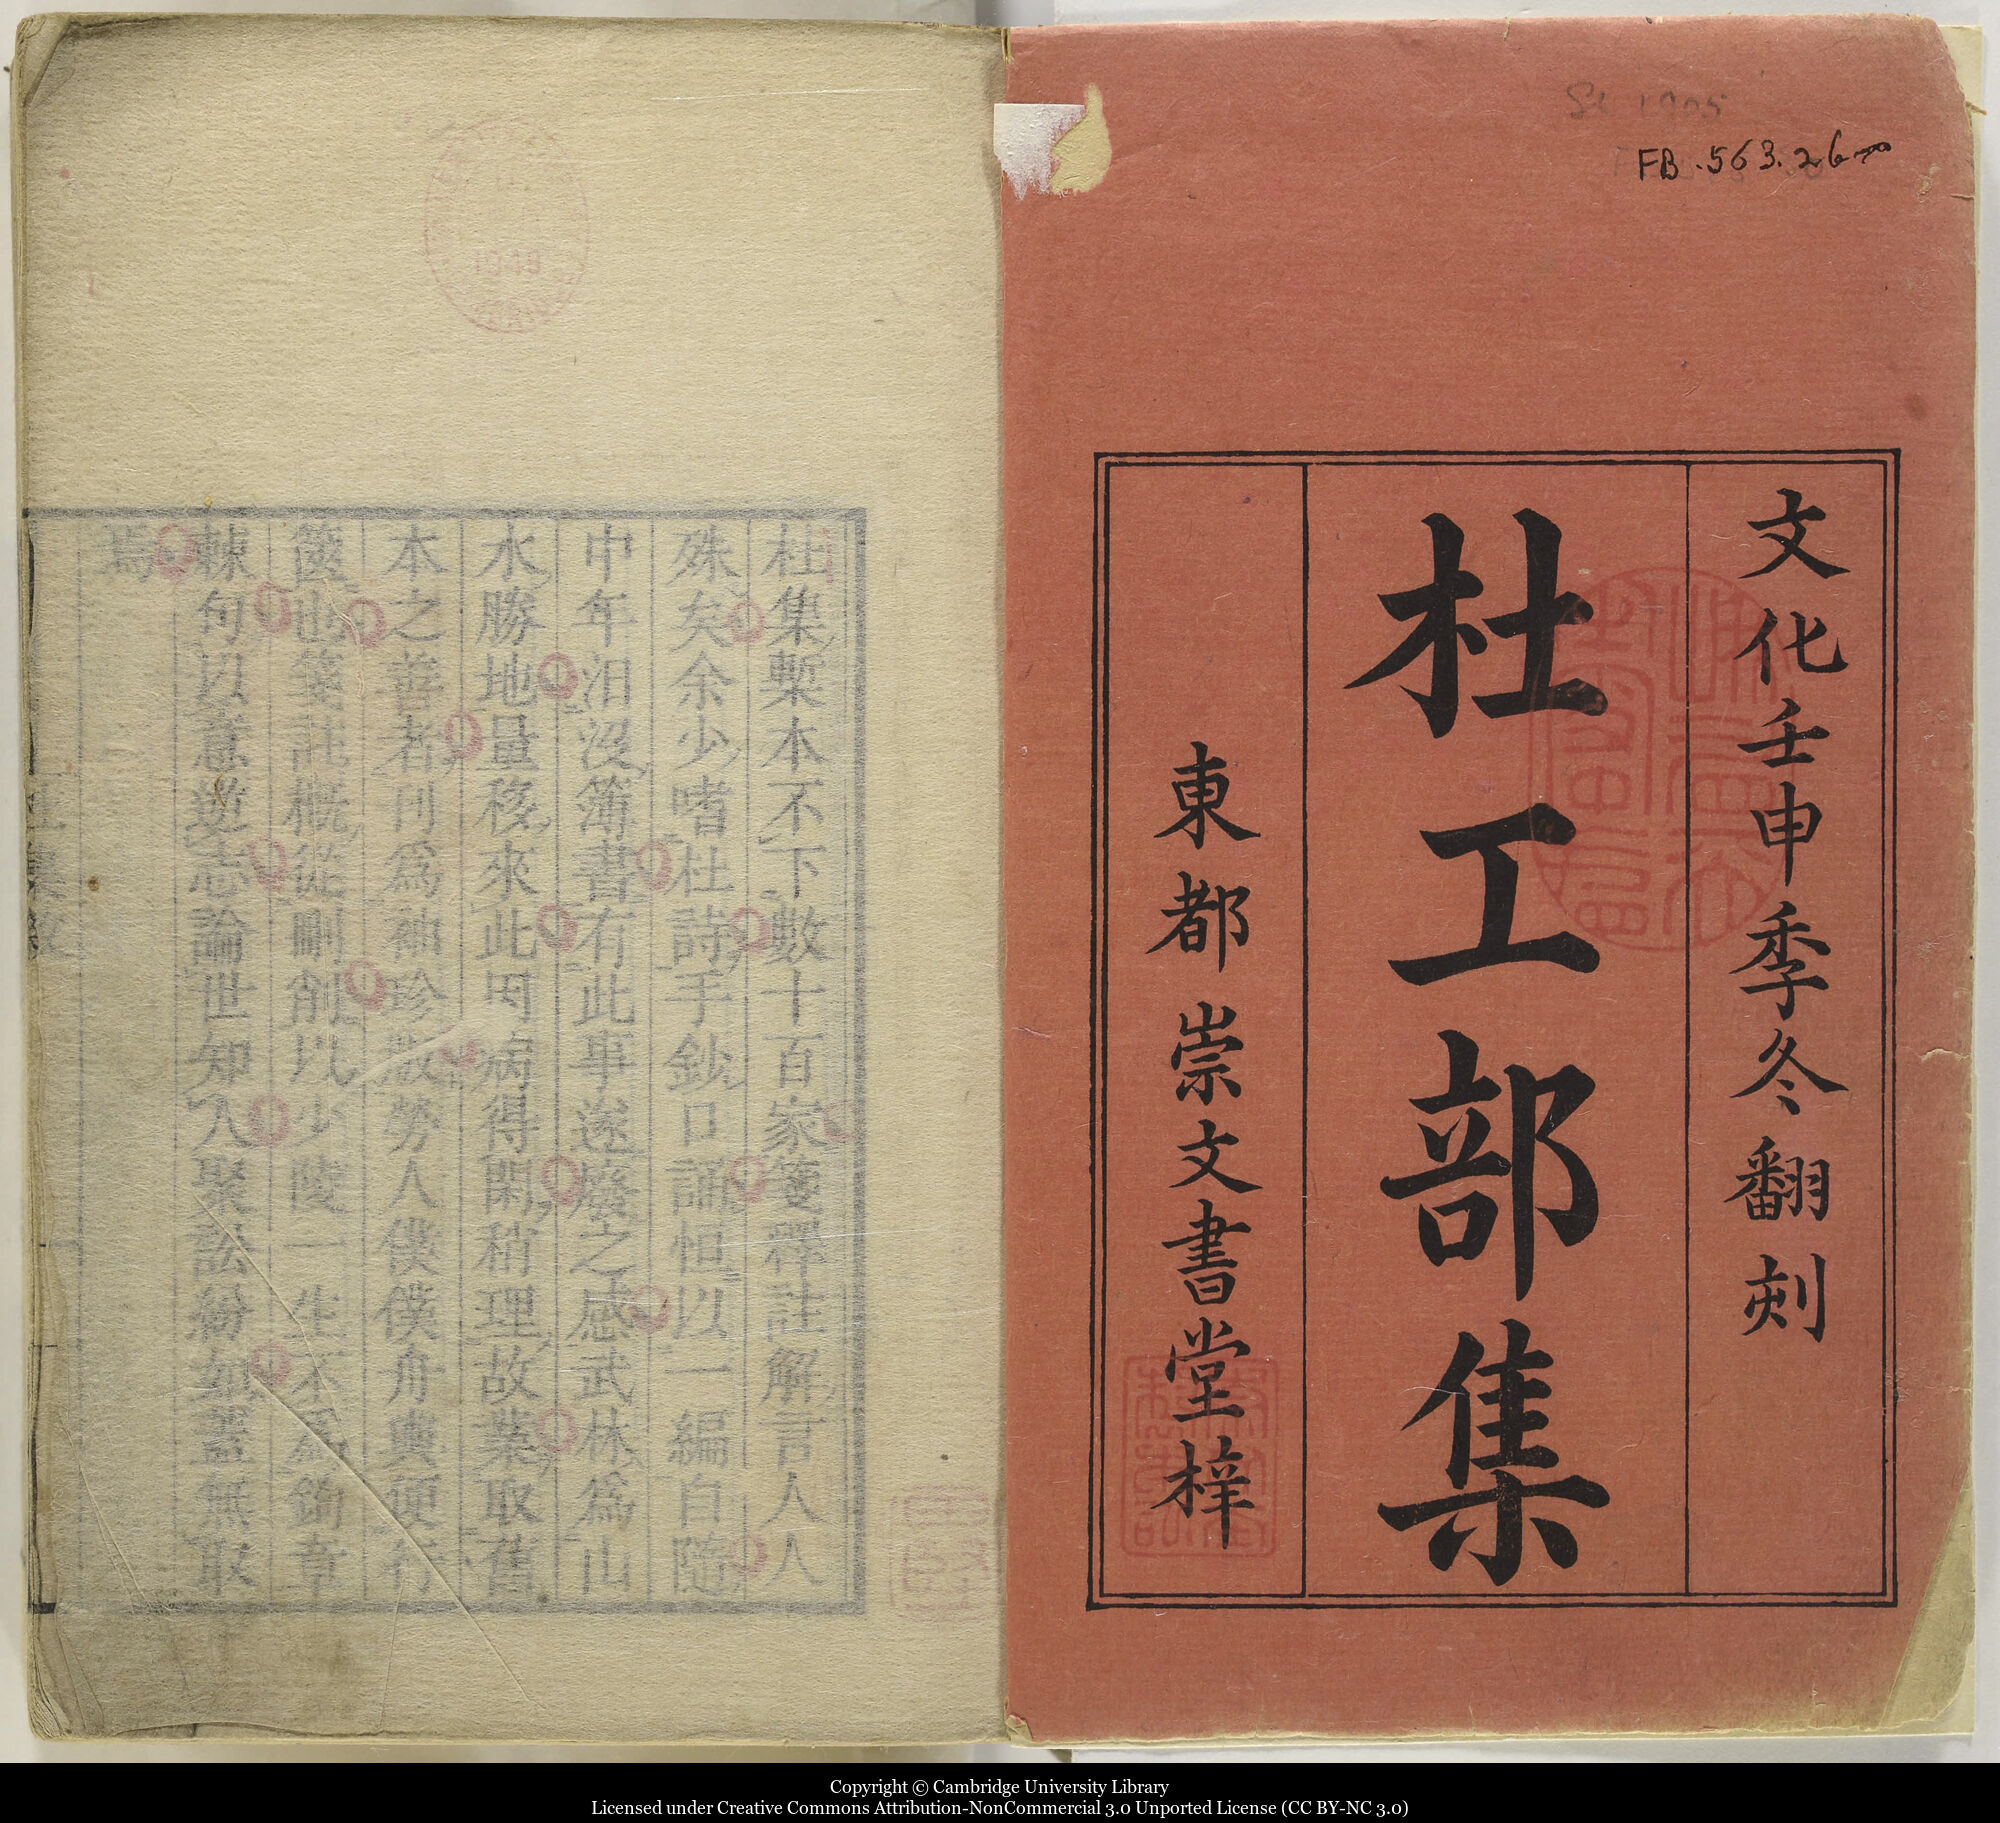 FB.563.26
文化壬申季冬翻刻
杜工部集
東都 崇文書堂梓
杜集槧本不下數十百家箋釋註解言人人
殊矣余少嗜杜詩手鈔口誦恒以一編自隨
中年汩沒簿書有此事遂廢之感武林為山
水勝地量移來此因病得閑稍理故業取舊
本之善者刊為袖珍敢勞人僕僕舟輿便行
篋也箋註概從刪削以少陵一生不為鉤章
棘句以意逆志論世知人聚訟紛如蓋無取
焉
Copyright © Cambridge University Library
Licensed under Creative Commons Attribution-NonCommercial 3.0 Unported License (CC BY-NC 3.0)